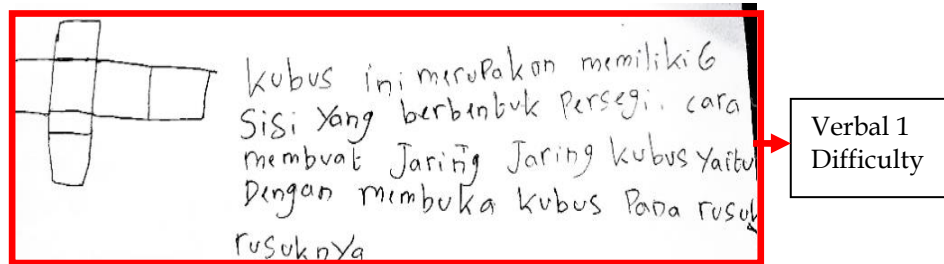 kubus ini merupakan memiliki 6
Sisi Yang berbentuk Persegi. cara
membuat Jaring Jaring kubus Yaitu
Dengan membuka kubus Pada rusuk
rusuknya
Verbal 1
Difficulty